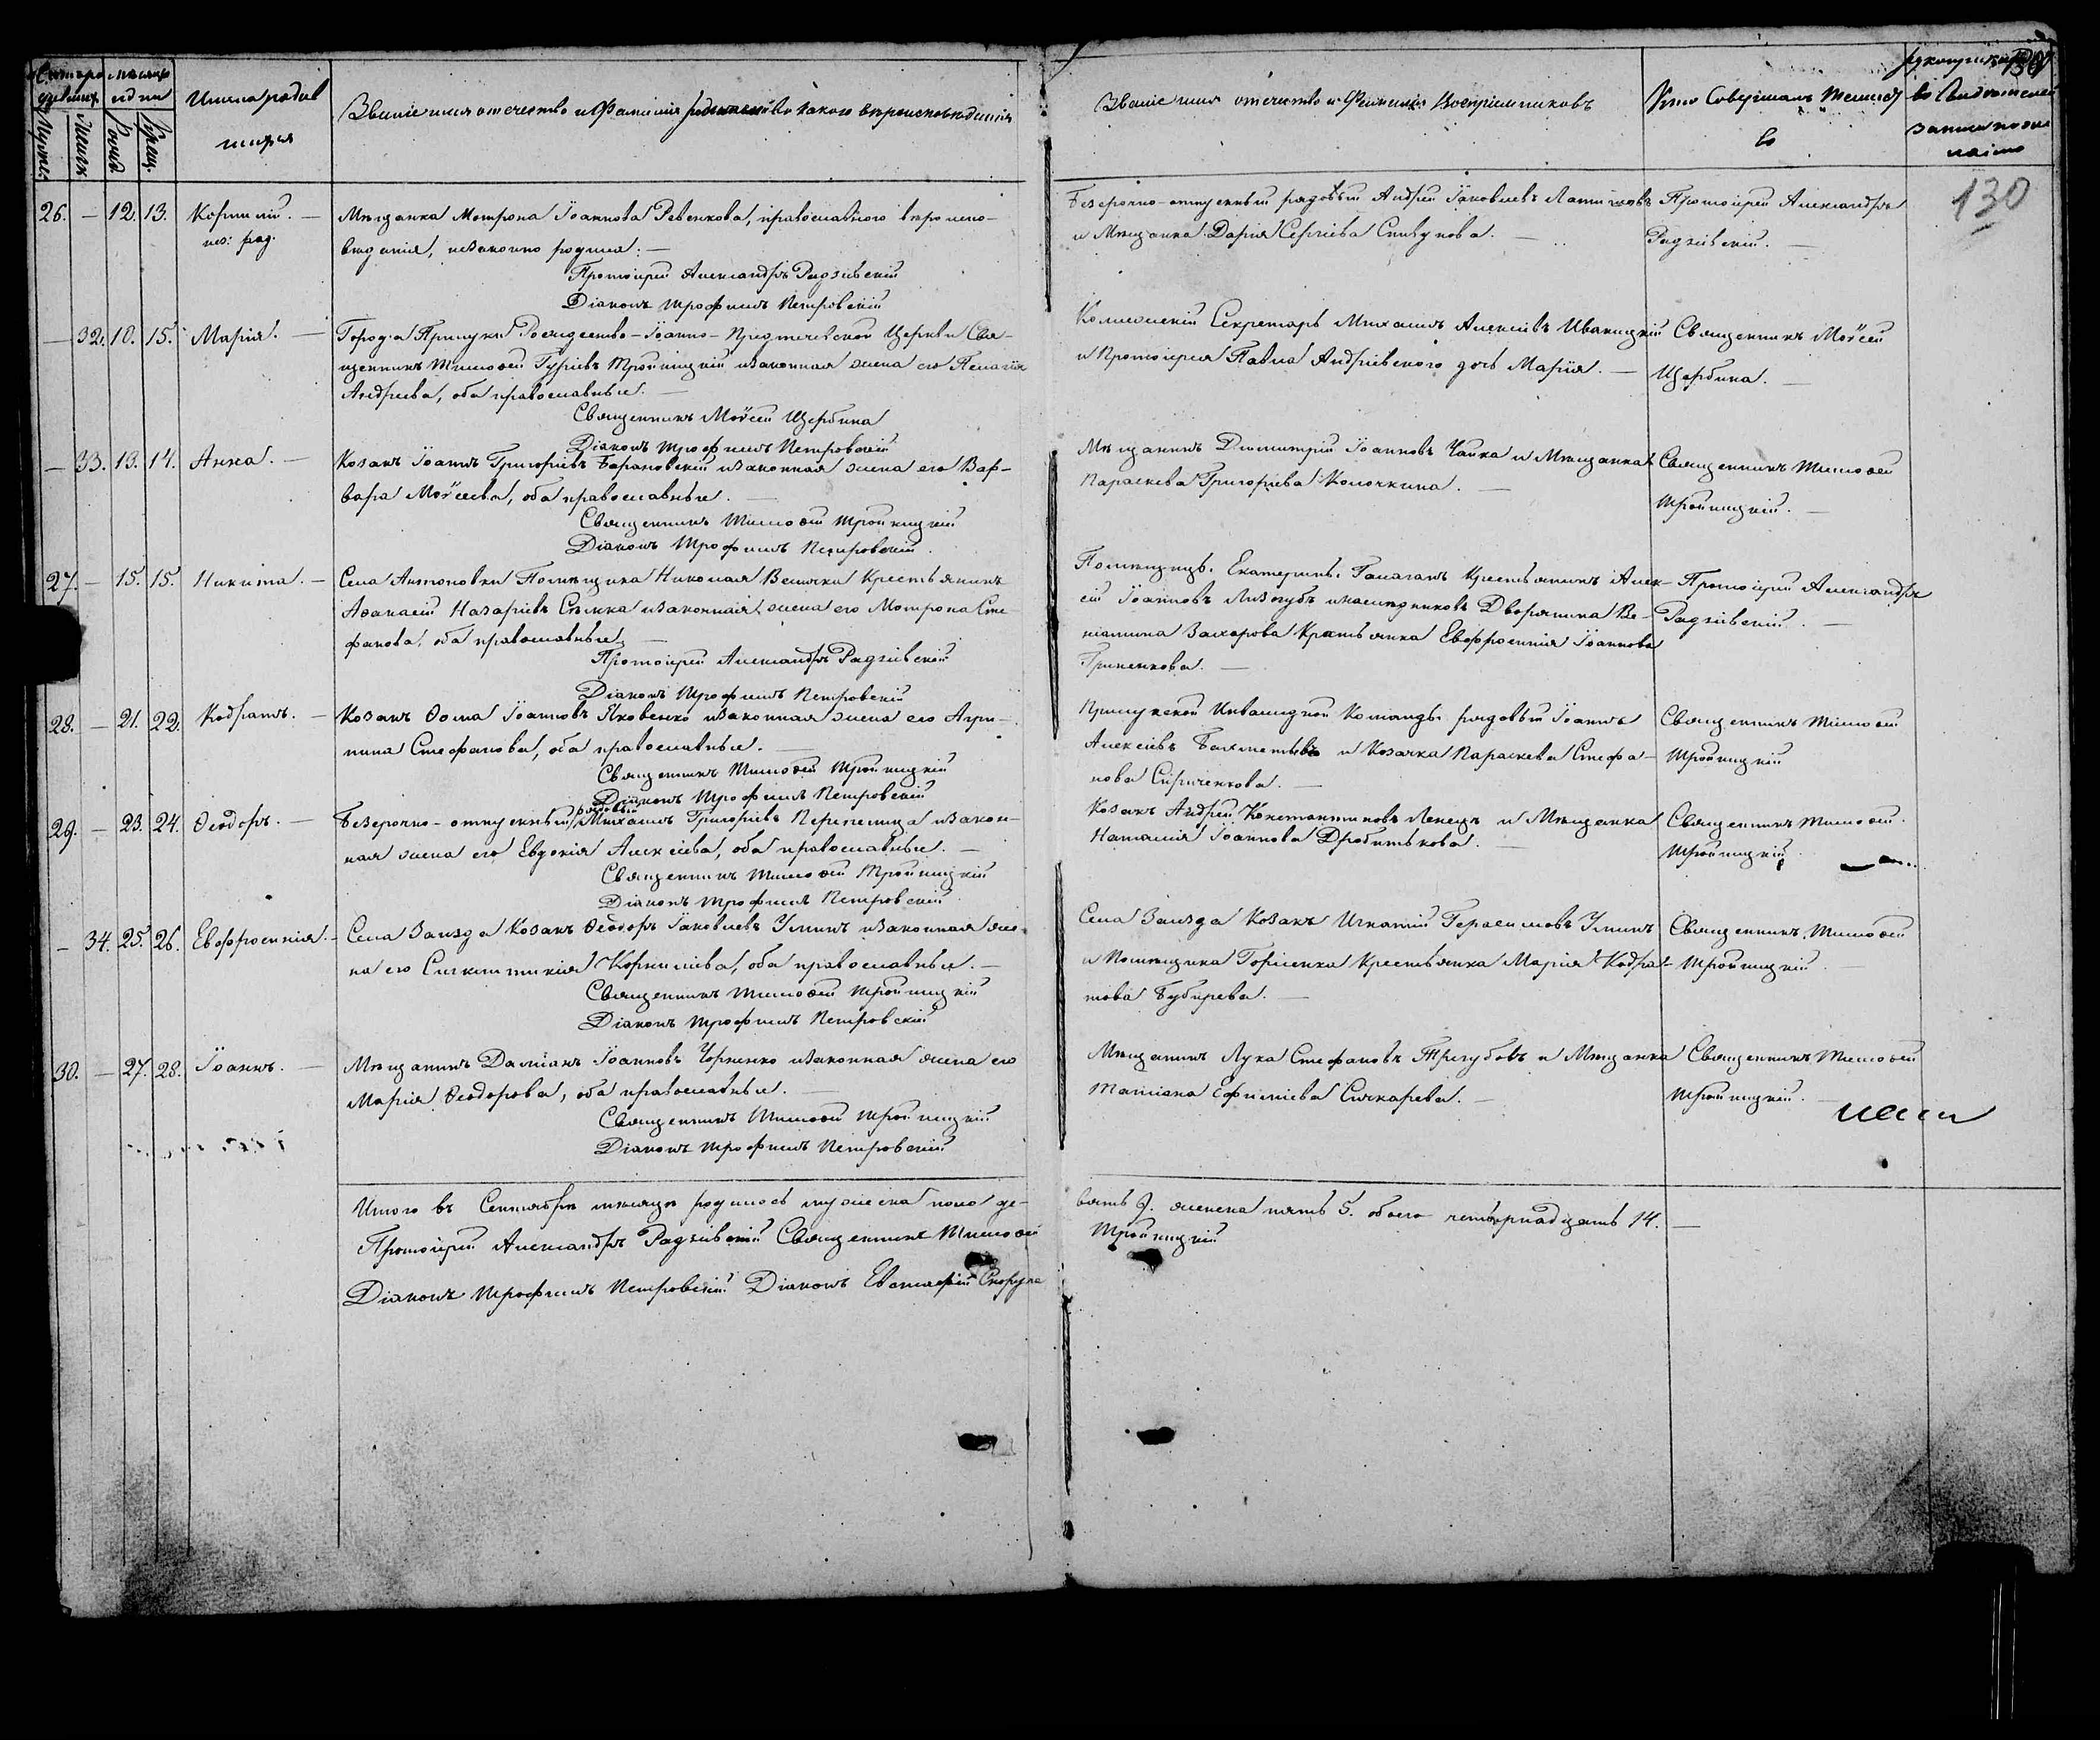 Имена родив
шихся
Званіе имя отечество и Фамилія родителей и какого вѣроисповѣданія
Званіе имя отечество и Фамилія Воспріемниковъ
Кто Совершалъ Таинст
во
Свидѣтелей
записи по же
ланію
130
26. — 12. 13. Корнилій. —
нез: рад.
Мѣщанка Мотрона Іоаннова Ревенкова, православного вѣроиспо-
вѣданія, незаконно родила. —
Протоіерей Александръ Радзіевскій
Діаконъ Трофимъ Петровскій
Безсрочно-отпускный рядовый Андрей Іаковлевъ
и Мѣщанка Дарія Сергіева Спивукова. —
Протоіерей Александръ
Радзіевскій. —
— 32. 10. 15. Марія. —
Города Прилуки Рождество-Іоанно-Предтечевской Церкви Свя-
щенникъ Тимоѳей Гуріевъ Тройницкій и законная жена его Пелагія
Андреева, оба православные. —
Священникъ Моѵсей Щербина
Діаконъ Трофимъ Петровскій
Коллежскій Секретарь Михаилъ Алексіевъ Иваницкій
и Протоіерея Павла Андріевского дочь Марія. —
Священникъ Моѵсей
Щербина. —
— 33. 13. 14. Анна. —
Козакъ Іоаннъ Григоріевъ Барановскій и законная жена его Вар-
вара Моѵсеева, оба православные. —
Священникъ Тимоѳей Тройницкій
Діаконъ Трофимъ Петровскій.
Мѣщанинъ Димитрій Іоанновъ Чайка и Мѣщанка
Параскева Григоріева Колочкина. —
Священникъ Тимоѳей
Тройницкій. —
27. — 15. 15. Никита. —
Села Антоновки Помѣщика Николая Велички Крестьянинъ
Аѳанасій Назаріевъ и законная жена его Мотрона Сте-
фанова, оба православные. —
Протоіерей Александръ Радзіевскій
Діаконъ Трофимъ Петровскій
Помѣщицы Екатерины Галаганъ Крестьянинъ Алек-
сій Іоанновъ Лизогубъ и наслѣдниковъ Дворянина Ве-
ніамина Захарова Крестьянка Евфросинія Іоаннова
Гриненкова. —
Протоіерей Александръ
Радзіевскій. —
28. — 21. 22. Кодратъ. —
Козакъ Ѳома Іоанновъ Яковенко и законная жена его Агри-
пина Стефанова, оба православные. —
Священникъ Тимоѳей Тройницкій
Діаконъ Трофимъ Петровскій
Прилукской Инвалидной Команды рядовый Іоаннъ
Алексіевъ Бахметьевъ и Козачка Параскева Стефа-
нова Сириченкова. —
Священникъ Тимоѳей
Тройницкій
29. — 23. 24. Ѳеодоръ. —
Безсрочно-отпускный рядовый Михаилъ Григоріевъ Перепелица и закон-
ная жена его Евдокія Алексіева, оба православные. —
Священникъ Тимоѳей Тройницкій
Діаконъ Трофимъ Петровскій
Козакъ Андрей Константиновъ Ленецъ и Мѣщанка
Наталія Іоаннова Дробитькова. —
Священникъ Тимоѳей
Тройницкій
— 34. 25. 26. Евфросинія. —
Села Заизда Козакъ Ѳеодоръ Іаковлевъ Улинъ и законная же-
на его Сигклитикія Корниліева, оба православные. —
Священникъ Тимоѳей Тройницкій
Діаконъ Трофимъ Петровскій
Села Заизда Козакъ Игнатій Герасимовъ Улинъ
и Помѣщика Горленка Крестьянка Марія Кодра-
това Бубирева. —
Священникъ Тимоѳей
Тройницкій. —
30. — 27. 28. Іоаннъ. —
Мѣщанинъ Даміанъ Іоанновъ Чорненко и законная жена его
Марія Ѳеодорова, оба православные. —
Священникъ Тимоѳей Тройницкій
Діаконъ Трофимъ Петровскій
Мѣщанинъ Лука Стефановъ Тригубовъ и Мѣщанка
Татіана Ефиміева Слюкарева. —
Священникъ Тимоѳей
Тройницкій. —
Итого въ Сентябрѣ мѣсяцѣ родилось мужеска пола де-
вять 9. женска пять 5. обоего четырнадцать 14. —
Протоіерей Александръ Радзіевскій Священникъ Тимоѳей
Тройницкій
Діаконъ Трофимъ Петровскій Діаконъ Евстафій